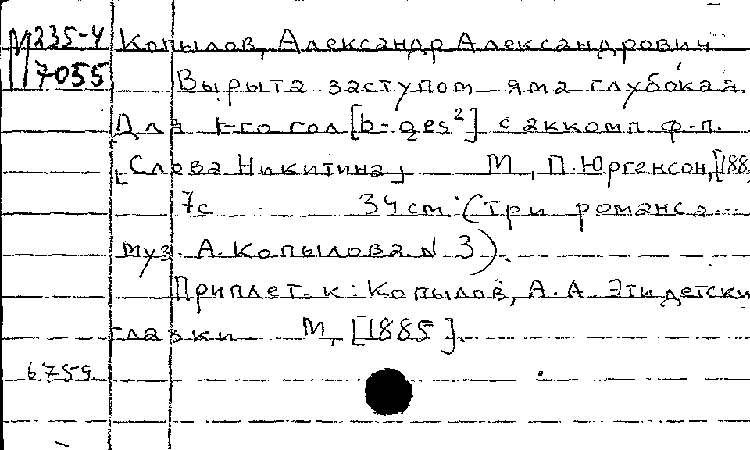 М 235-4 Копылов, Александр Александрович
7055 Вырыта заступом яма глубокая.
Для 1-го гол [b-ges²] с аккомп. ф-п.
[Слова Никитина] М, П. Юргенсон, [188
7с 34см (Три романса...
муз. А. Копылова N 3).
Приплет. к: Копылов, А. А. Эти детски
глазки М, [1885].
6759